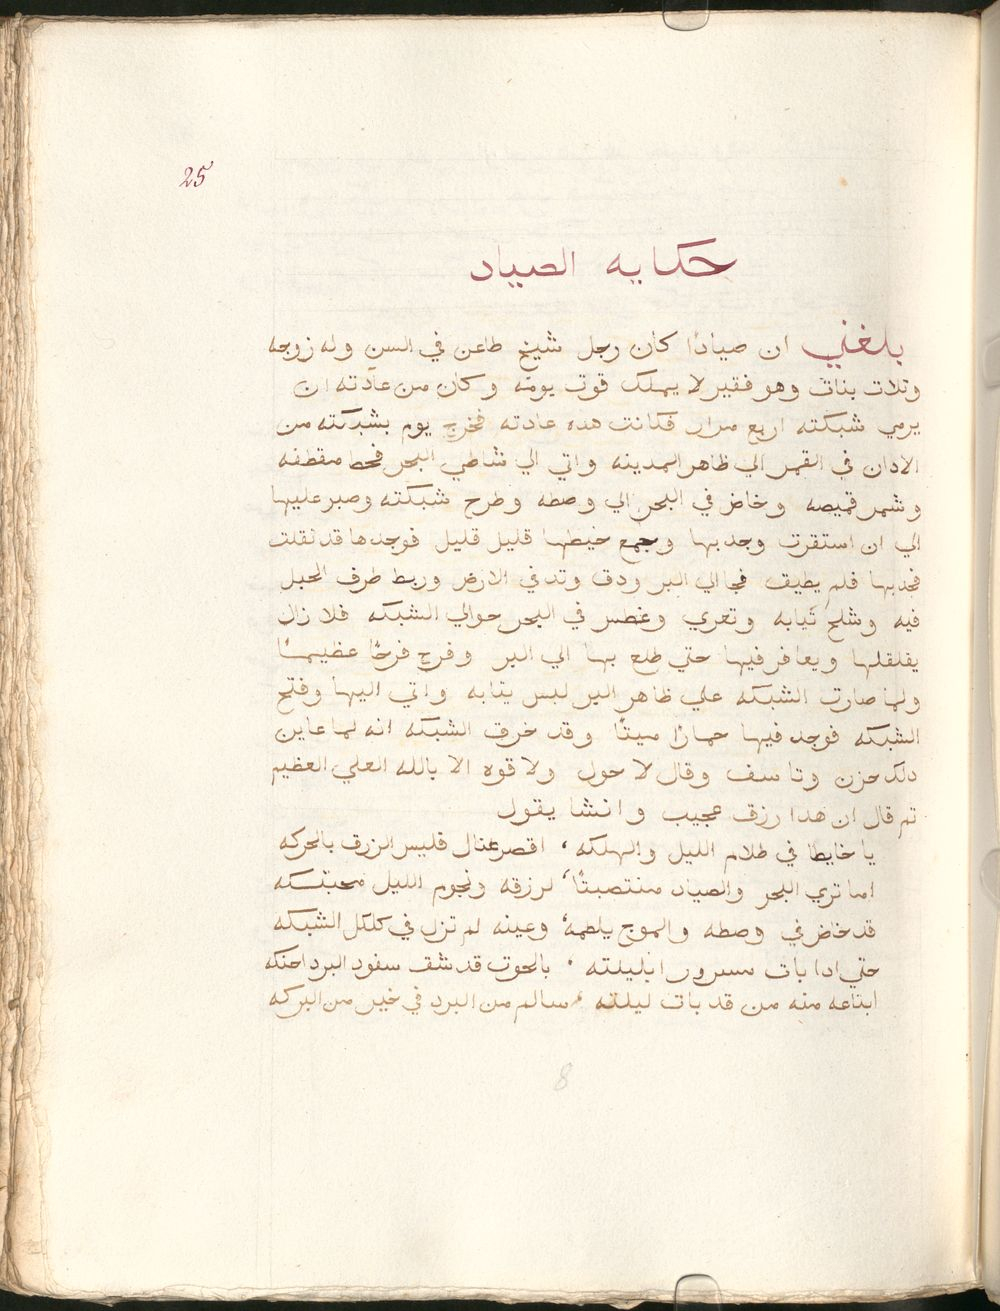 25
حكايه الصياد
بلغني ان صيادًا كان رجل شيخ طاعن في السن وله زوجه
وتلات بنات وهو فقير لا يملك قوت يومه وكان من عادته ان
يرمي شبكته اربع مرار فكانت هده عادته فخرج يوم بشبكته من
الادان في القمر الي ظاهر المدينه واتي الي شاطي البحر فحط مقطفه
وشمر قميصه وخاض في البحر الي وصطه وطرح شبكته وصبر عليها
الي ان استقرت وجدبها وجمع خيطها قليل قليل فوجدها قد تقلت
فجدبها فلم يطيق فجا الي البر ودق وتد في الارض وربط طرف الحبل
فيه وشلح تيابه وتعري وغطس في البحر حوالي الشبكه فلا زال
يقلقلها ويعافر فيها حتي طلع بها الي البر وفرح فرحًا عظيمًا
ولما صارت الشبكه علي ظاهر البر لبس يتابه واتي اليها وفتح
الشبكه فوجد فيها حمارًا ميتًا وقد خرق الشبكه انه لما عاين
دلك حزن وتاسف وقال لا حول ولا قوه الا بالله العلي العظيم
تم قال ان هدا رزق عجيب وانشا يقول
يا خايطا في طلام الليل والهلكه، اقصر عنال فليس الرزق بالحركه
اما تري البحر والصياد منتصبتًا، لرزقه ونجوم الليل محتبسكه
قد خاض في وصطه والموج يلطمه، وعينه لم تزل في كلكل الشبكه
حتي ادا بات مسرورا بليلته . بالحوت قد شف سفود البرد احنكه
ابتاعه منه من قد بات ليلته، سالم من البرد في خير من البركه
8